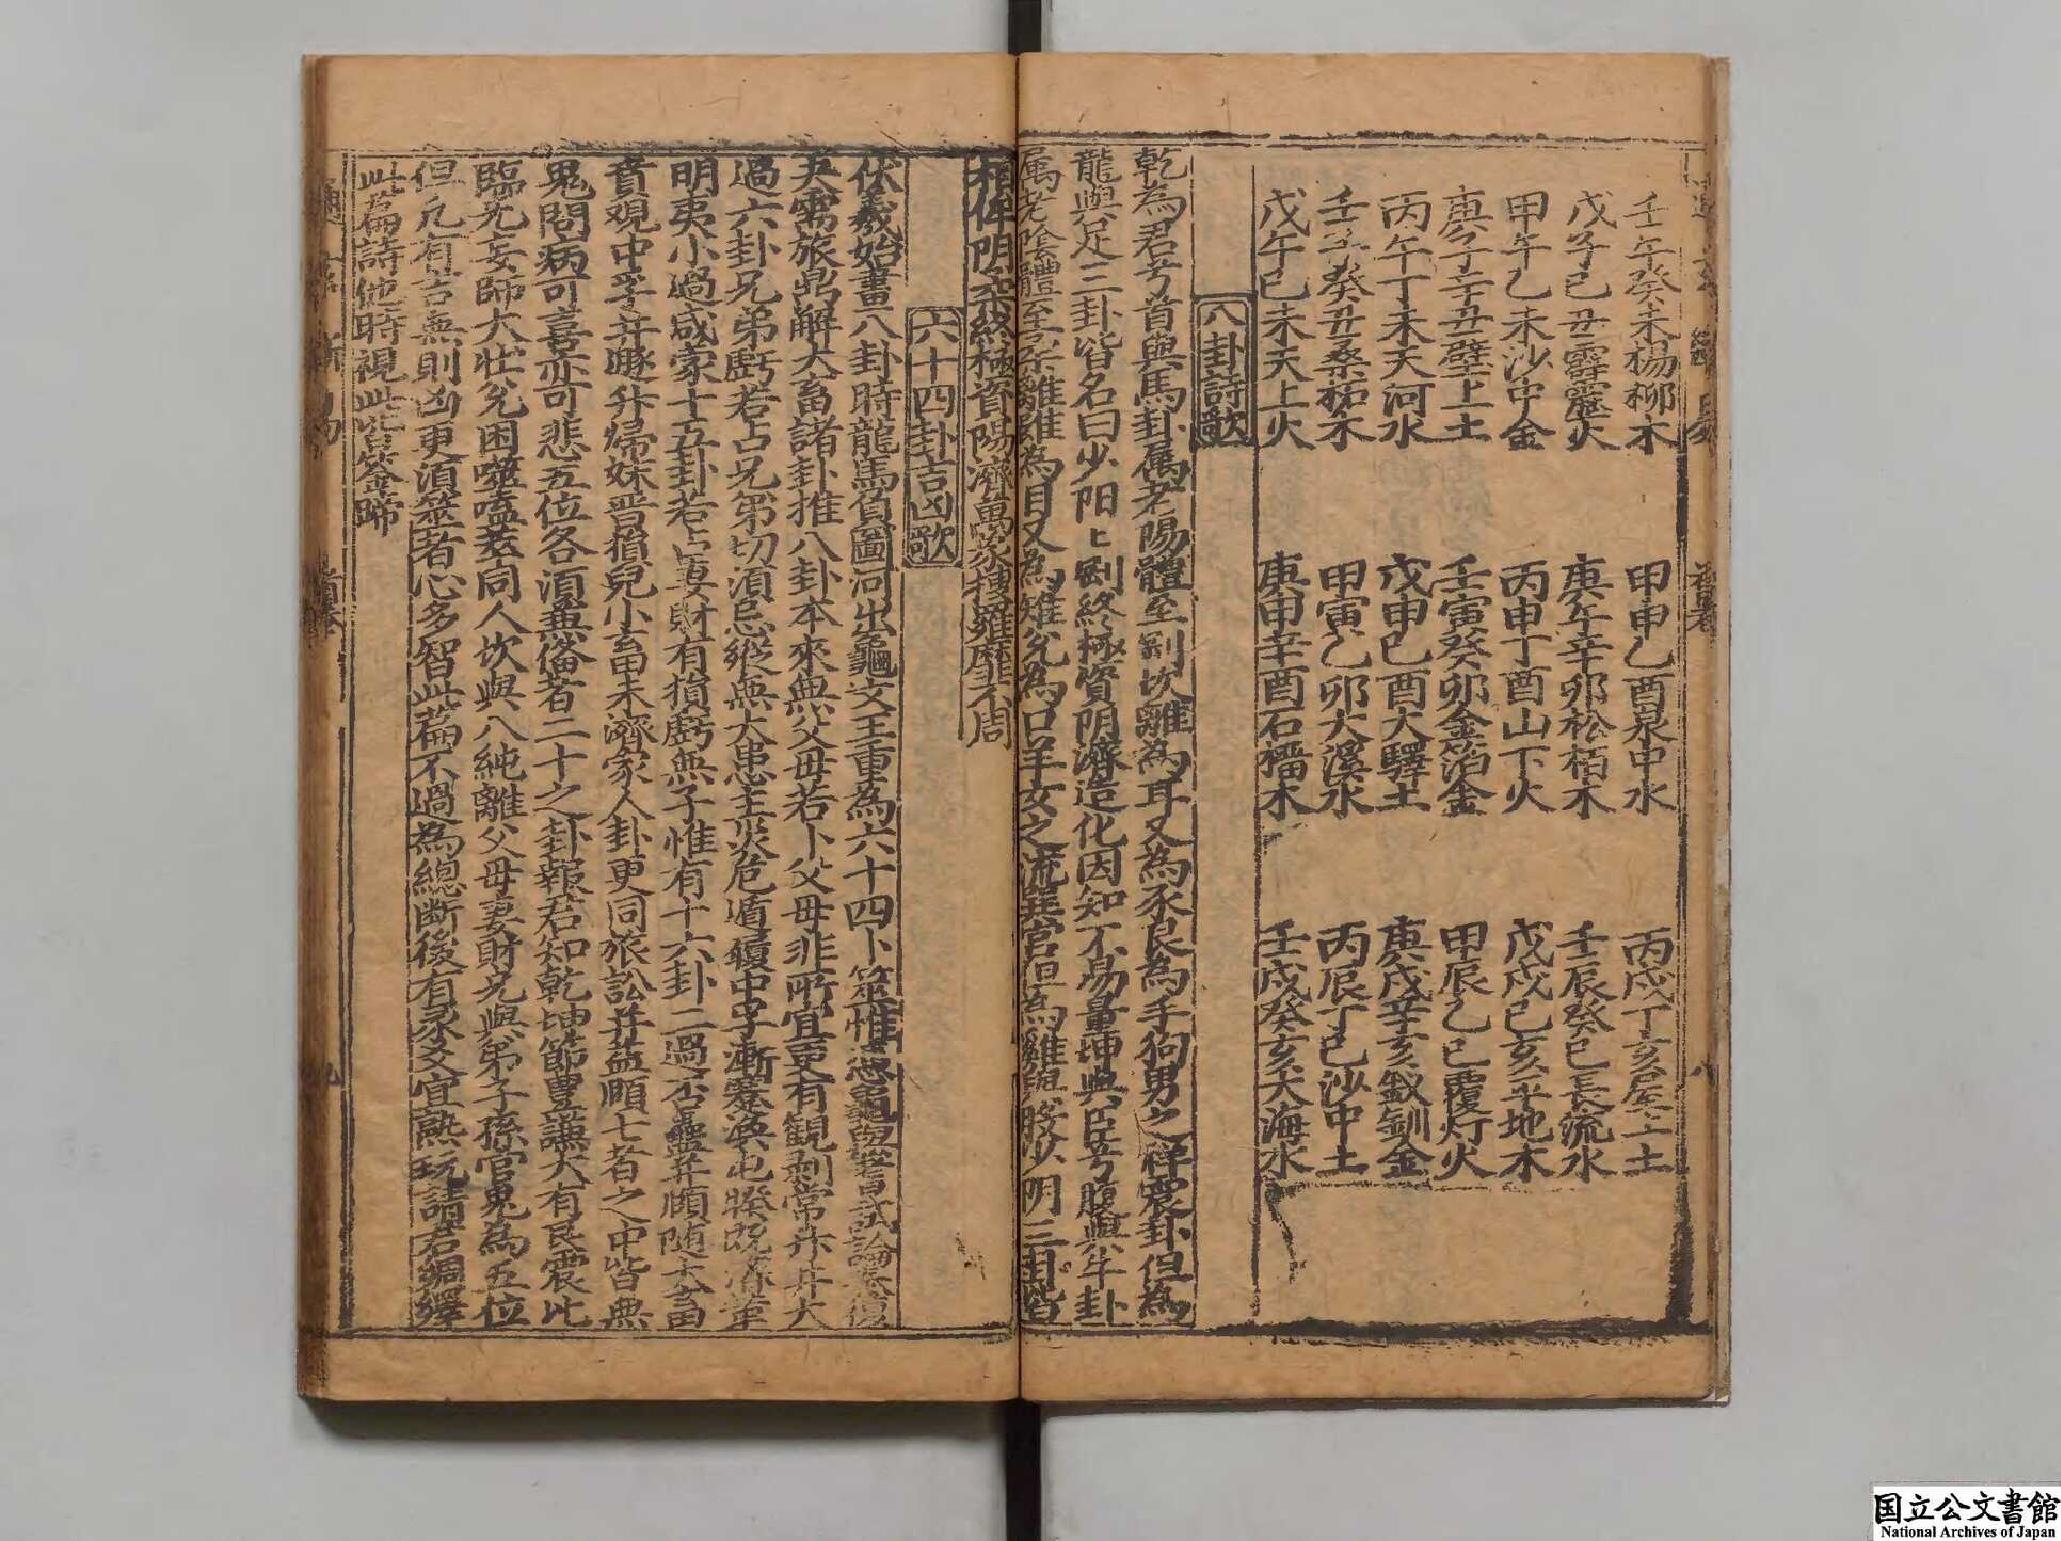 壬午癸未楊柳木 甲申乙酉泉中水 丙戌丁亥屋上土
戊子己丑霹靂火 庚午辛卯松栢木 壬辰癸巳長流水
甲午乙未沙中金 丙申丁酉山下火 戊戌己亥平地木
庚子辛丑壁上土 壬寅癸卯金箔金 甲辰乙巳覆灯火
丙午丁未天河水 戊申己酉大驛土 庚戌辛亥釵釧金
壬子癸丑桑柘木 甲寅乙卯大溪水 丙辰丁巳沙中土
戊午己未天上火 庚申辛酉石榴木 壬戌癸亥大海水
八卦詩歌
乾為君兮首與馬卦属老陽體至剛坎離為耳又為豕艮為手狗男之祥震卦但為
龍與足三卦皆名曰少阳上剛終極資阴濟造化因知不易量坤與臣兮腹與牛卦
属老陰體至柔離雖為目又為雉兌為口羊女之流巽宫但為雞與股少阴三卦皆
相侔阴柔終極資陽濟萬象摟羅靡不周
六十四卦吉凶歌
伏羲始畫八卦時龍馬負圖河出龜文王重為六十四卜筮惟憑龜與蓍試論泰復
夬需旅鼎解大畜諸卦推八卦本來無父母若卜父母非所宜更有觀剥常并井大
過六卦兄弟虧若占兄弟切須忌縱無大患主災危遁履中孚漸蹇渙屯睽既濟革
明夷小過咸蒙十五卦若占妻財有損虧無子惟有十六卦二過否蠱并頤随大畜
賁觀中孚并遯升歸妹晋損兒小畜未濟家人卦更同旅訟并益頤七者之中皆無
鬼問病可喜亦可悲五位各須無俻者二十之卦報君知乾坤節豊謙大有艮震比
臨无妄師大壮兌困噬嗑萃同人坎與八純離父母妻財兄與弟子孫官鬼為五位
但凡有吉無則凶更須筮者心多智此篇不過為總断後有彖爻宜熟玩請君綢繹
此篇詩他時視此皆筌蹄
国立公文書館
National Archives of Japan